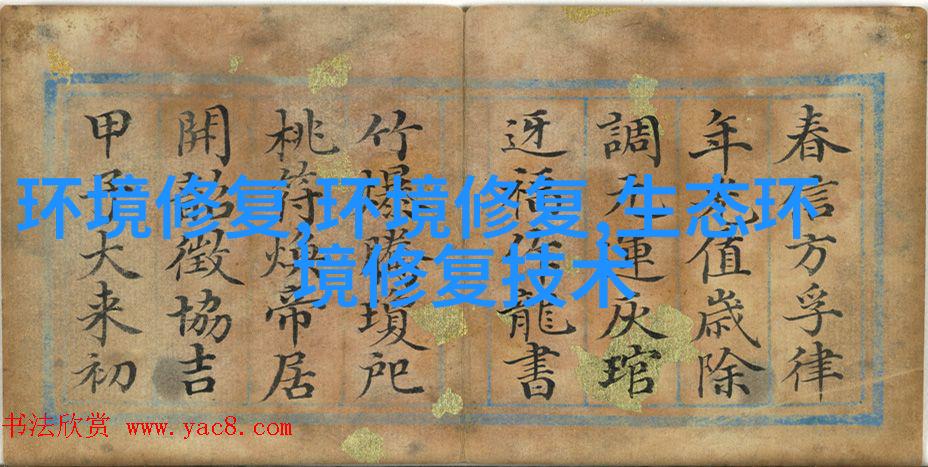 环境修复,环境修复,生态环
境修复技术
春信方孚律
年光值歲除
調元運灰琯
迓福作龍書
竹爆祀
桃符煥帝居
開韶徵協吉
甲子大来初
书法欣赏 www.yac8.com